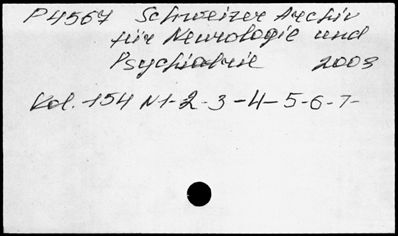 P4567 Schweizer Archiv
für Neurologie und
Psychiatrie 2003
Vol. 154 N1-2-3-4-5-6-7-